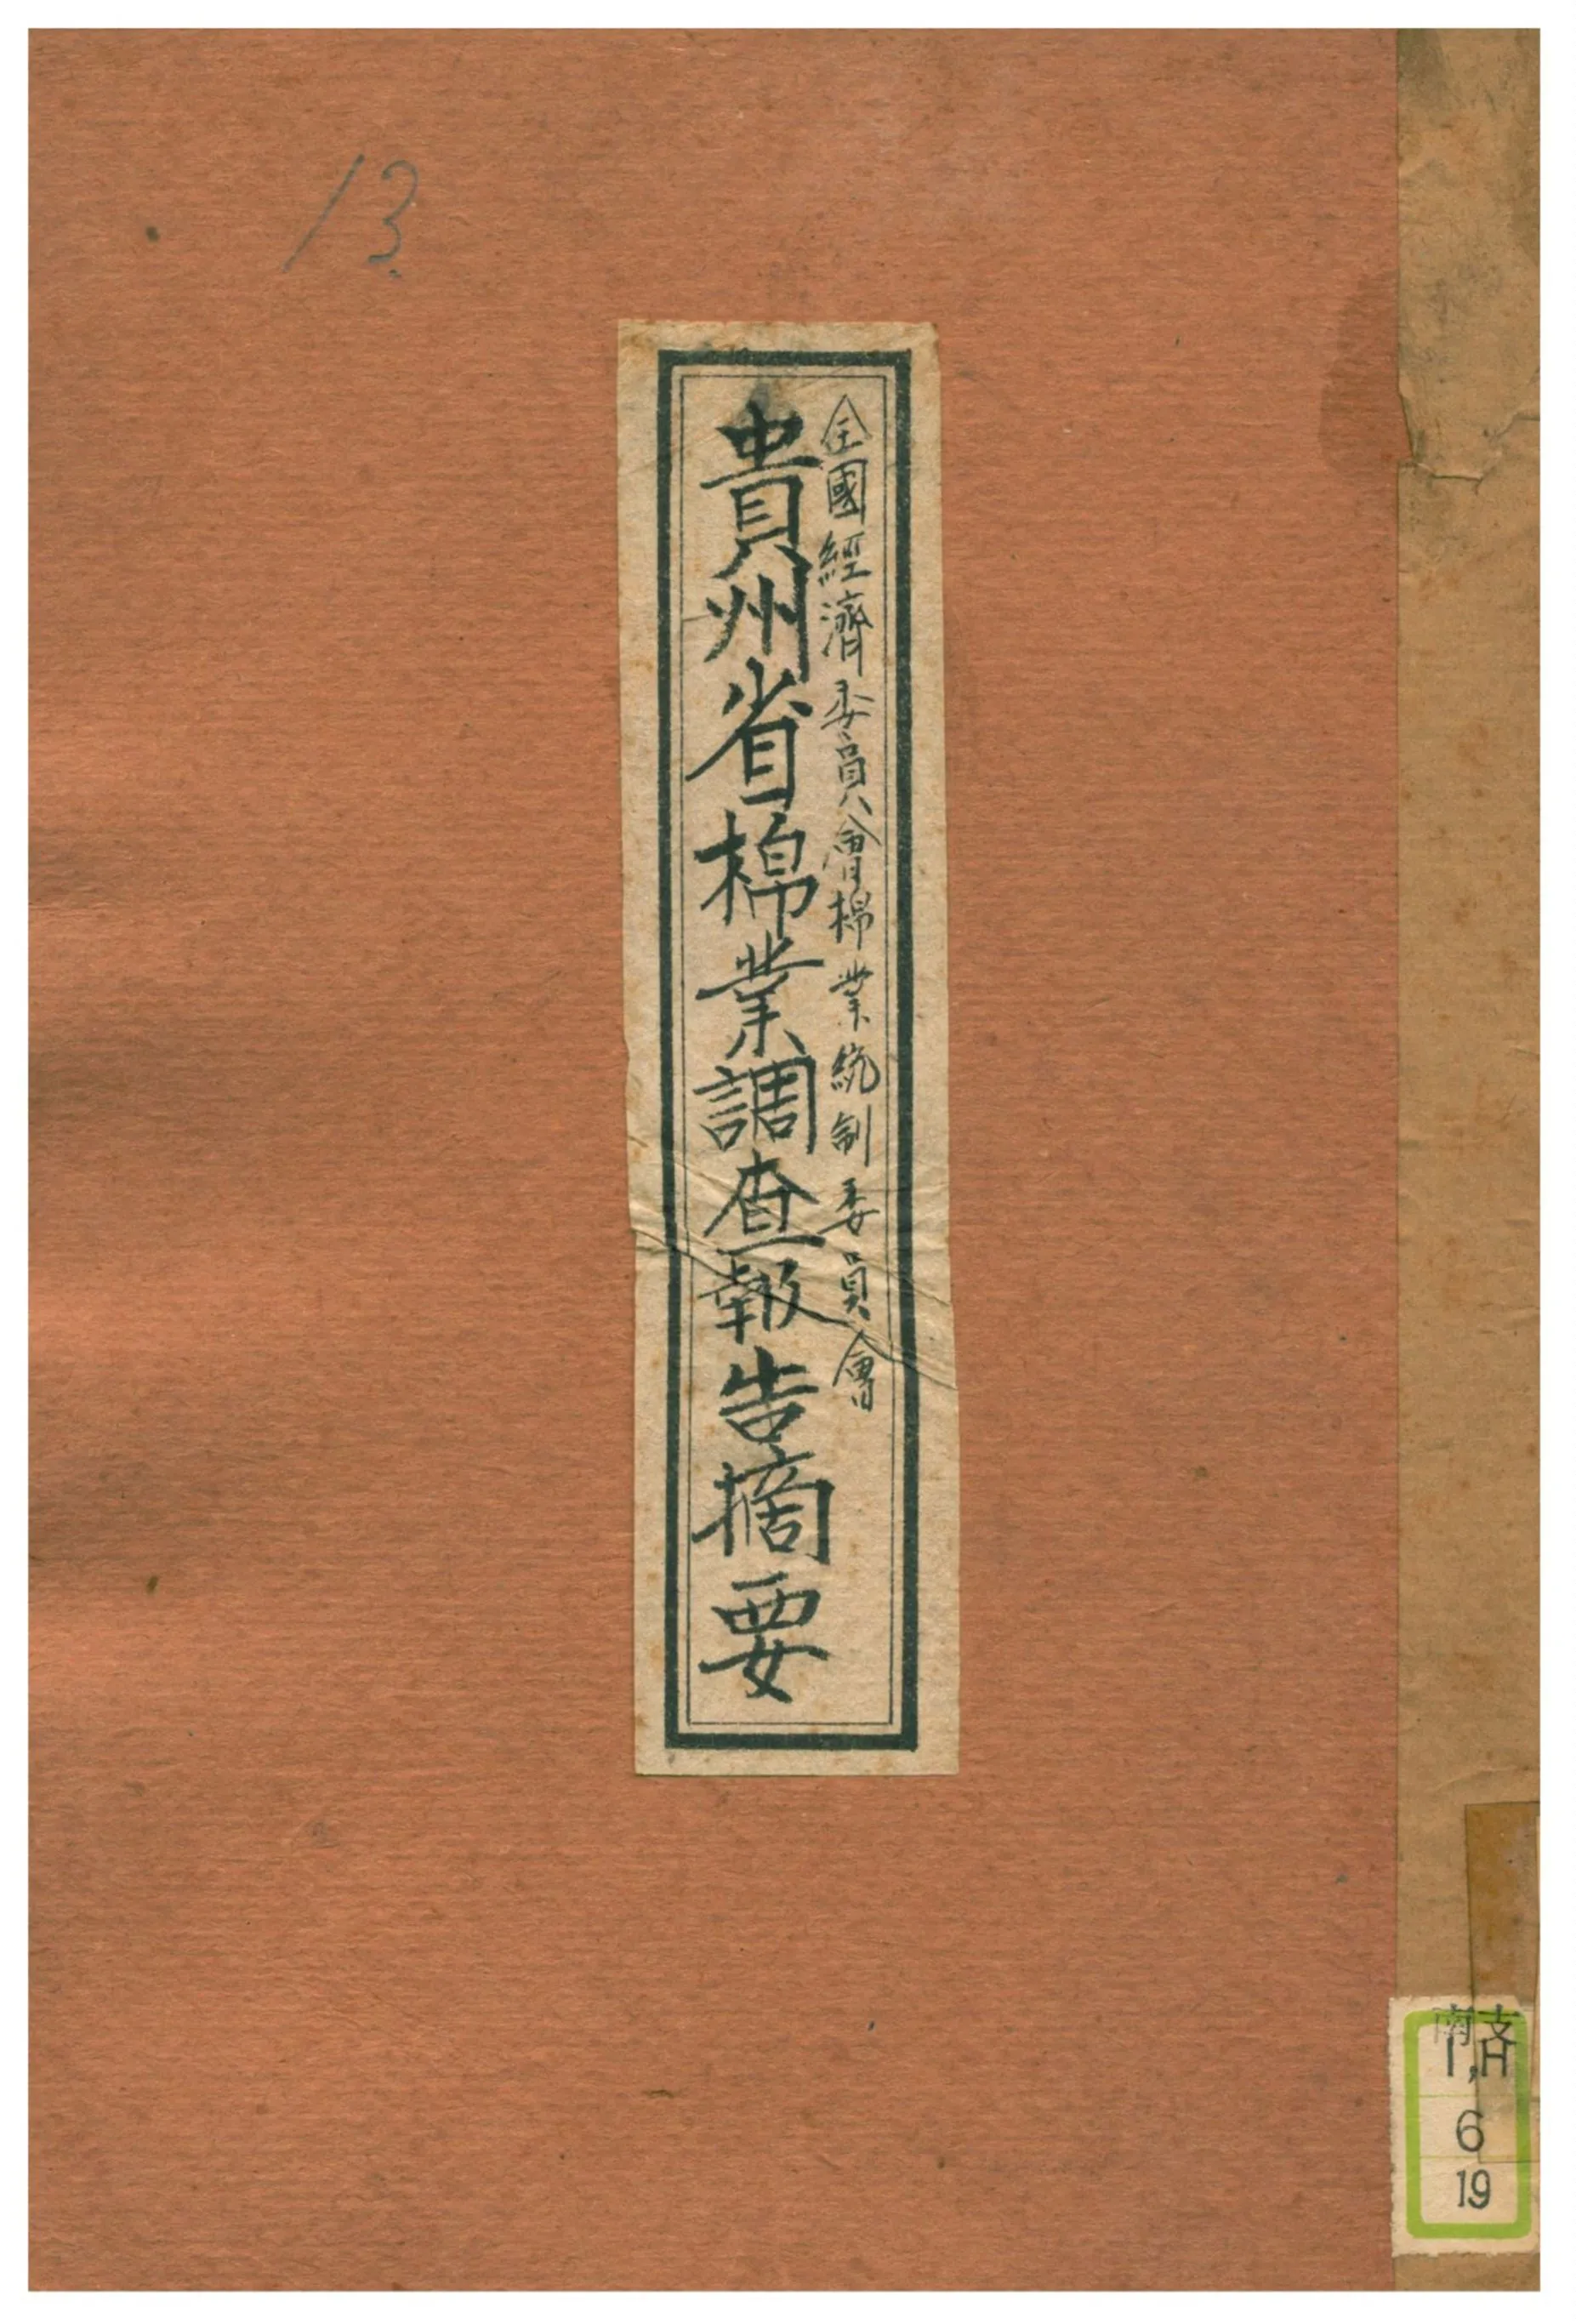 13
全國經濟委員會棉業統制委員會
貴州省棉業調查報告摘要
南支
I,H
6
19